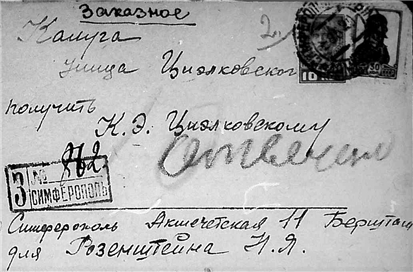 Заказное
Калуга
Улица Циолковского
получить
К. Э. Циолковскому
Отвечено
З № 862
СИМФЕРОПОЛЬ
Симферополь Акмечетская 11 Берштам
для Розенштейна Н. Я.